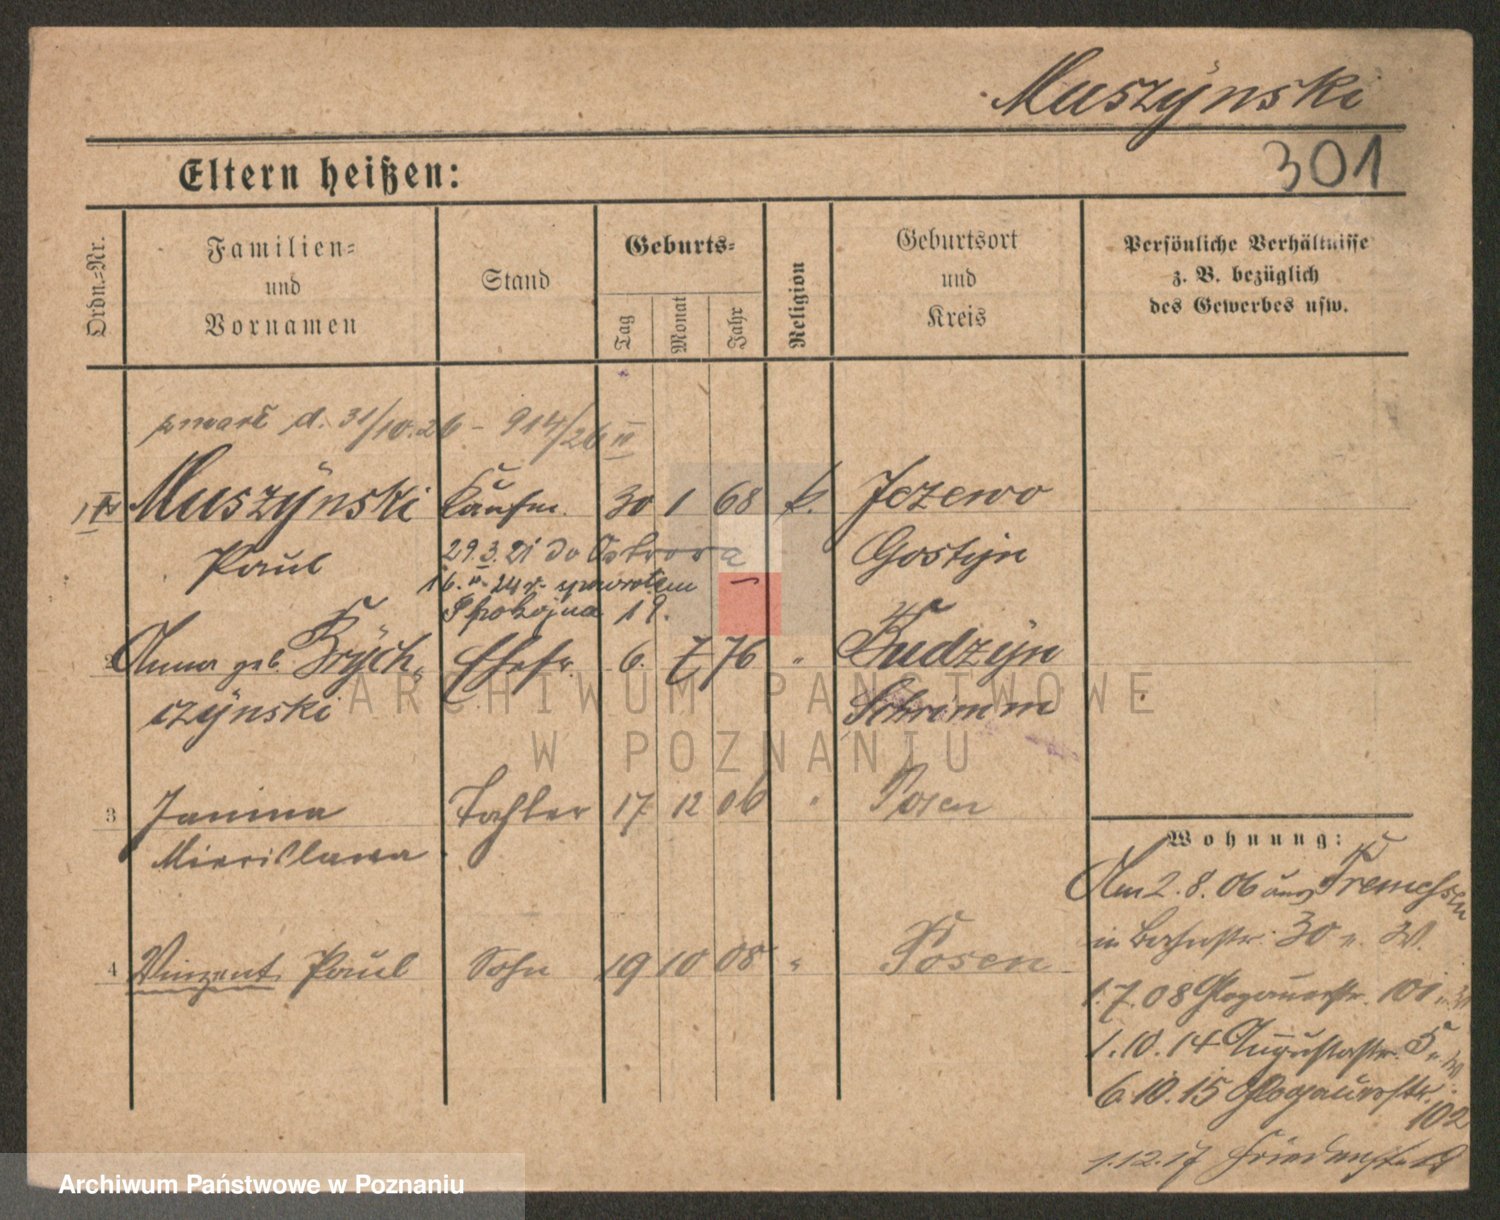 Muszÿnski
301
Eltern heißen:
Ordn.-Nr.
Familien-
und
Vornamen
Stand
Geburts-
Tag
Monat
Jahr
Religion
Geburtsort
und
Kreis
Persönliche Verhältnisse
z. B. bezüglich
des Gewerbes usw.
zmarł d. 31/10.26 - 914/26 II
1 Muszÿnski Kaufm. 30 1 68 k. Jezewo
Paul 29.3.21 do Ostrova Gostÿn
16. 24 r. zpowrotem
Spokojna 19.
2 Anna geb. Krÿch- Ehefr. 6. 7 76 " Kudzÿn
czÿnski Schrimm
3 Janina Tochter 17 12 06 " Posen
Miecislawa
4 Vinzent Paul Sohn 19 10 08 " Posen
Wohnung:
Am 2.8.06 aus Tremessen
in Bahnstr. 30 n. W.
1.7.08 Glogauerstr. 101 n. W
1.10.14 Augustastr. 5 n. W.
6.10.15 Glogauerstr.
102
1.12.17 Friedenstr. 19
ARCHIWUM PAŃSTWOWE
W POZNANIU
Archiwum Państwowe w Poznaniu